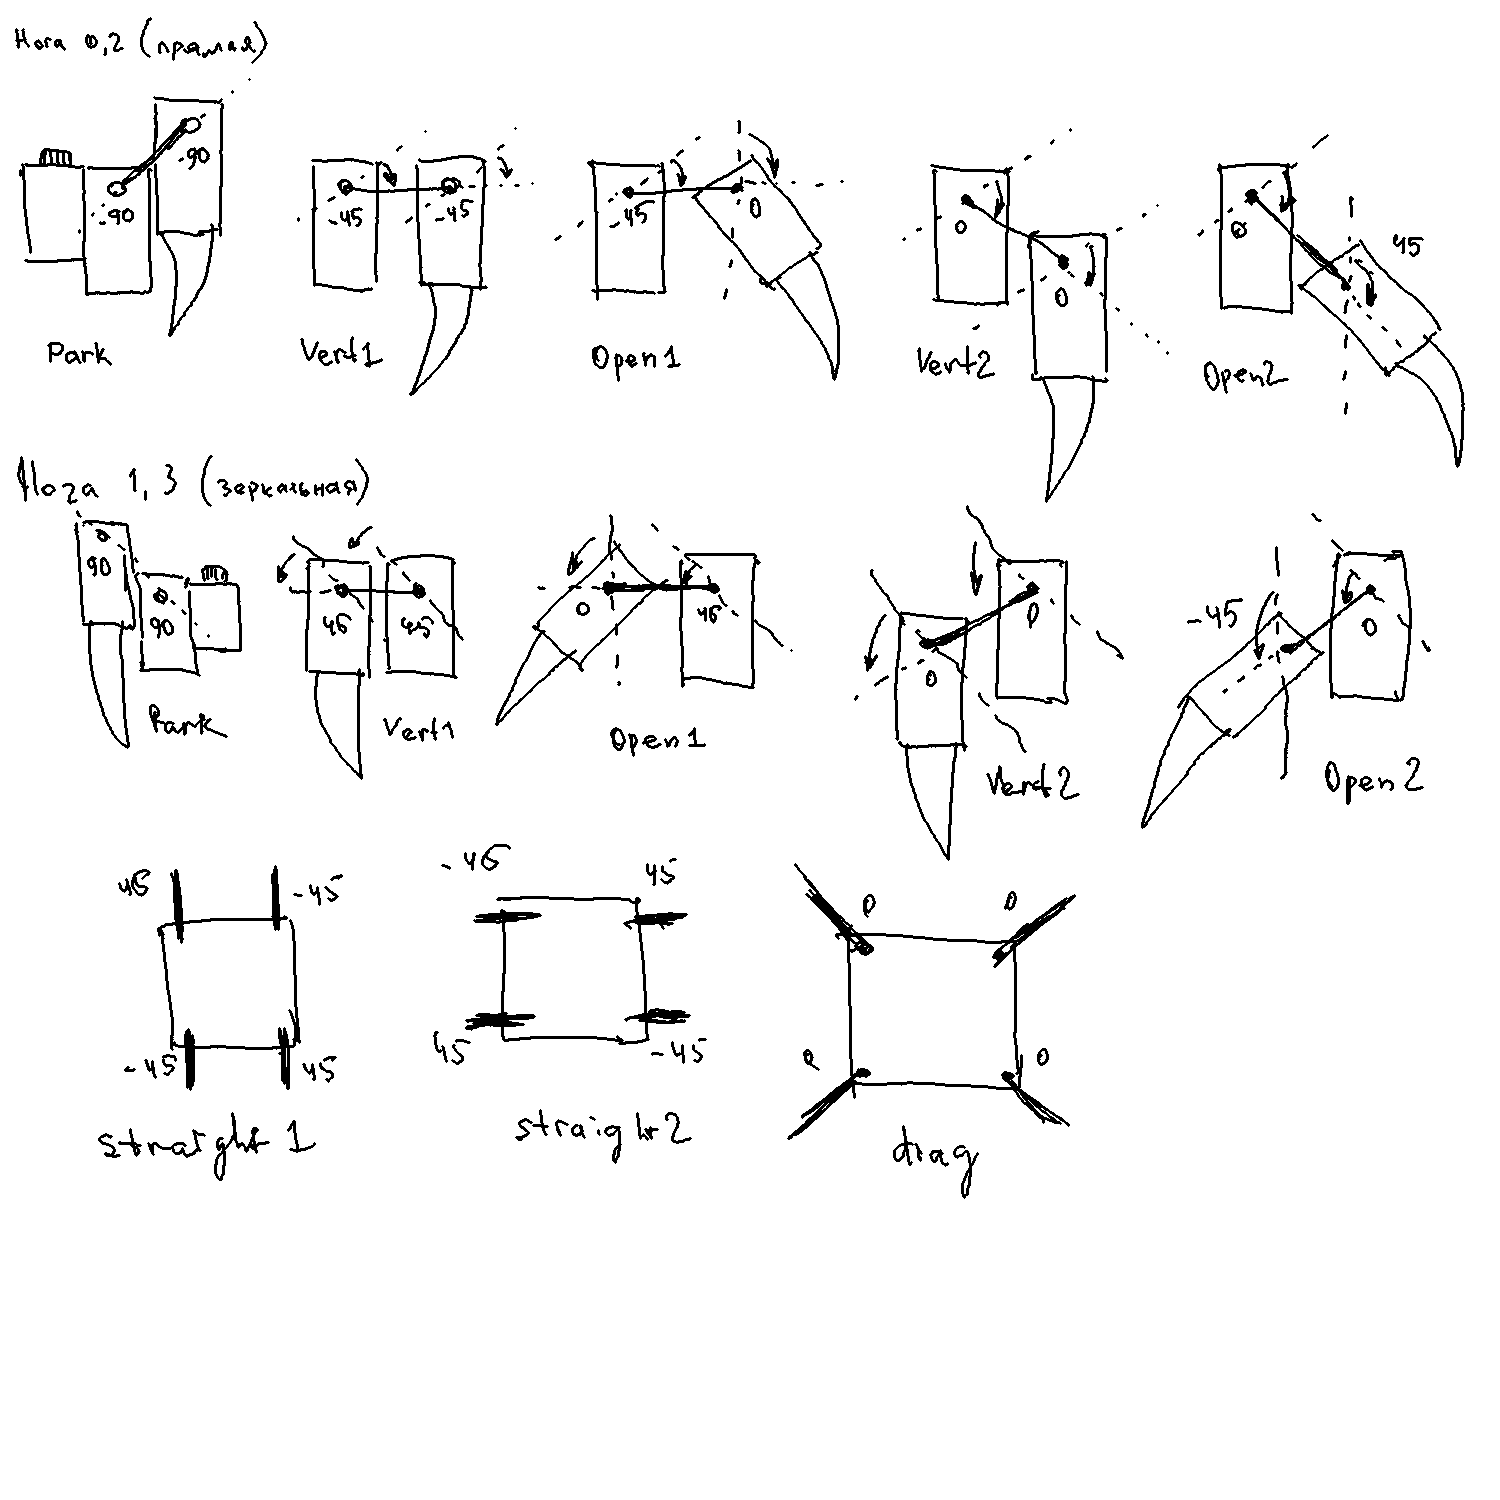 Нога 0,2 (прямая)
-90
-90
Park
-45
-45
Vert1
-45
0
Open1
0
0
Vert2
0
45
Open2
Нога 1,3 (зеркальная)
90
90
Park
45
45
Vert1
0
45
Open1
0
0
Vert2
-45
0
Open2
45
-45
-45
45
straight 1
-45
45
45
-45
straight 2
0
0
0
0
diag